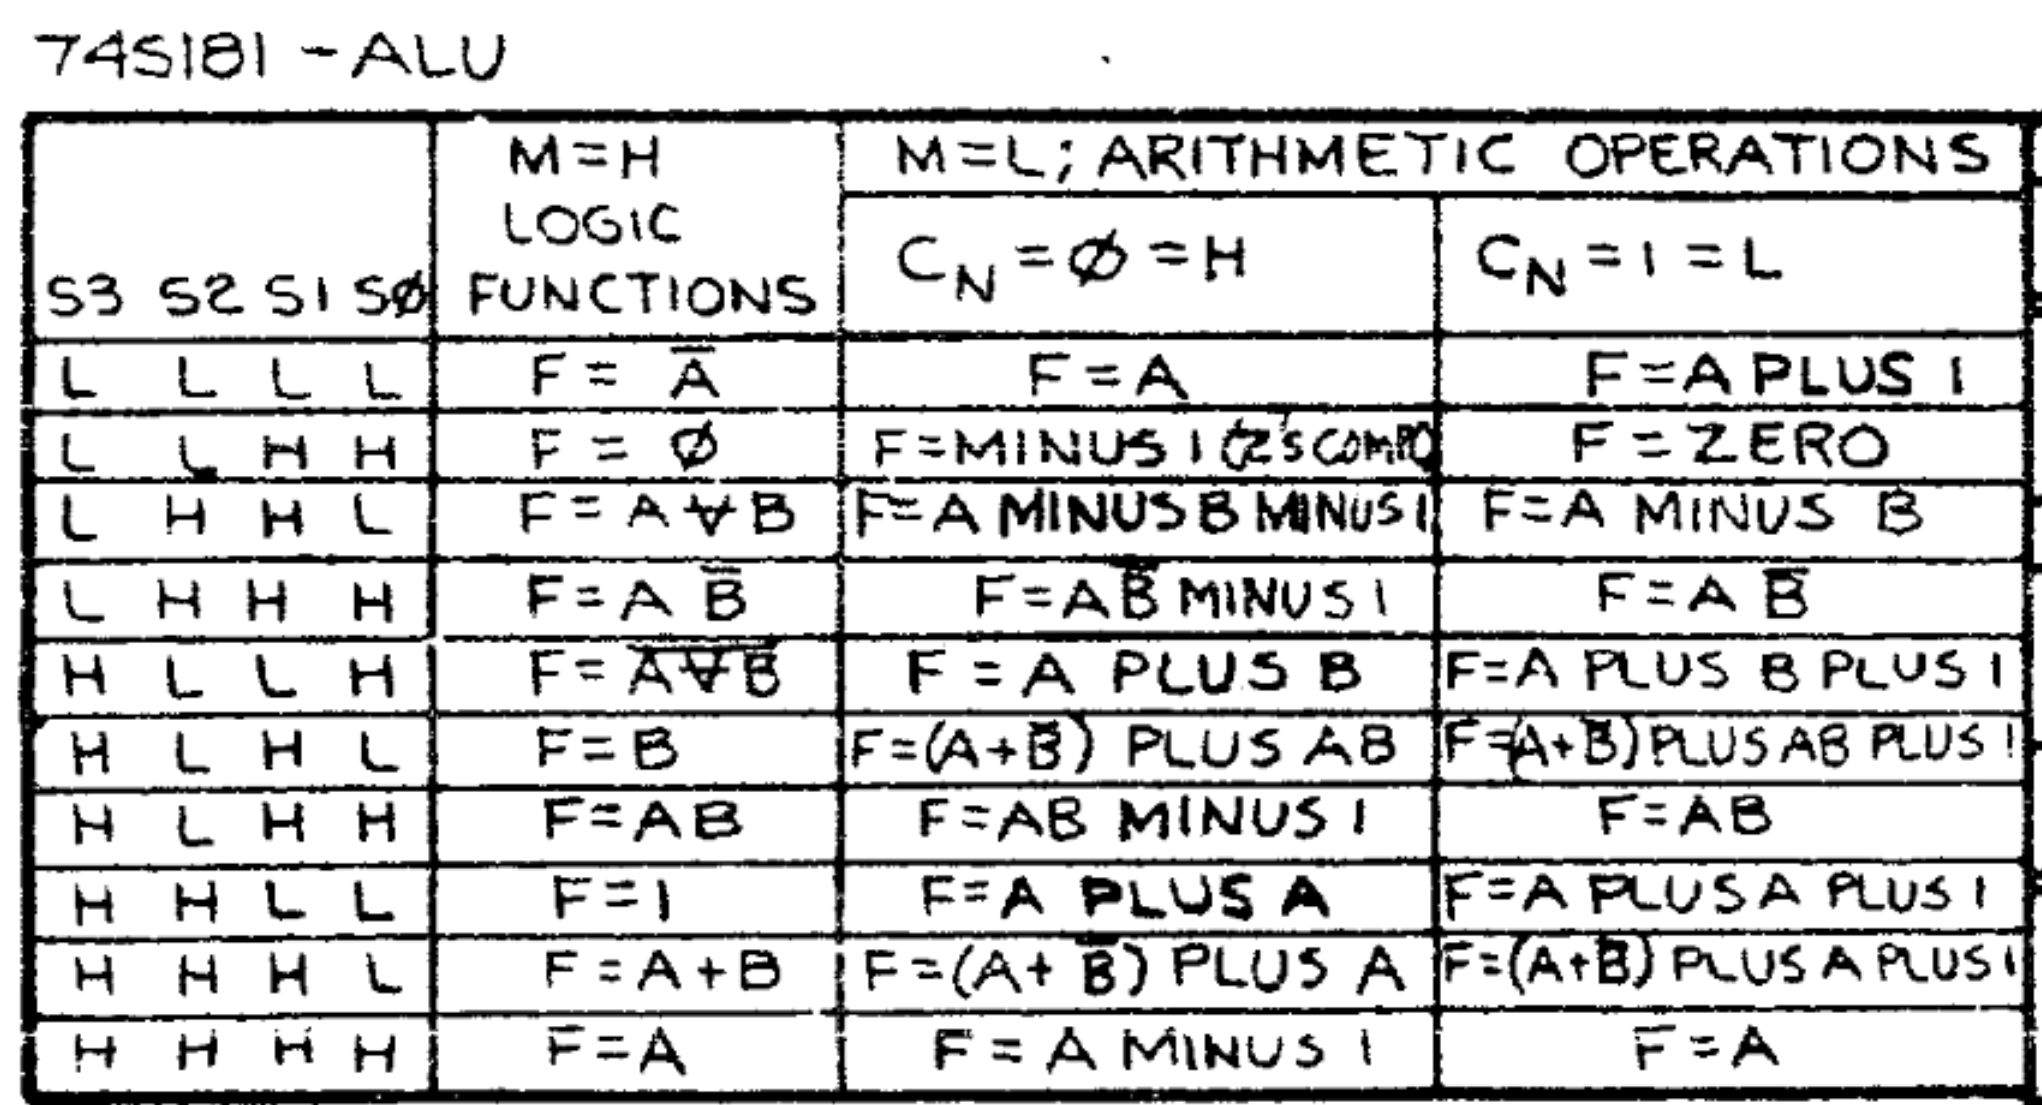 74S181 - ALU
M=H M=L; ARITHMETIC OPERATIONS
LOGIC
S3 S2 S1 SØ FUNCTIONS C_N = Ø = H C_N = 1 = L
L L L L F = A̅ F = A F = A PLUS 1
L L H H F = Ø F=MINUS 1 (2'S COMP) F = ZERO
L H H L F = A ⊻ B F=A MINUS B MINUS 1 F=A MINUS B
L H H H F = A B̅ F=AB̅ MINUS 1 F=A B̅
H L L H F = A̅ ⊻̅ B̅ F = A PLUS B F=A PLUS B PLUS 1
H L H L F=B F=(A+B̅) PLUS AB F=(A+B̅) PLUS AB PLUS 1
H L H H F=AB F=AB MINUS 1 F=AB
H H L L F=1 F=A PLUS A F=A PLUS A PLUS 1
H H H L F=A+B F=(A+B̅) PLUS A F=(A+B̅) PLUS A PLUS 1
H H H H F=A F = A MINUS 1 F=A